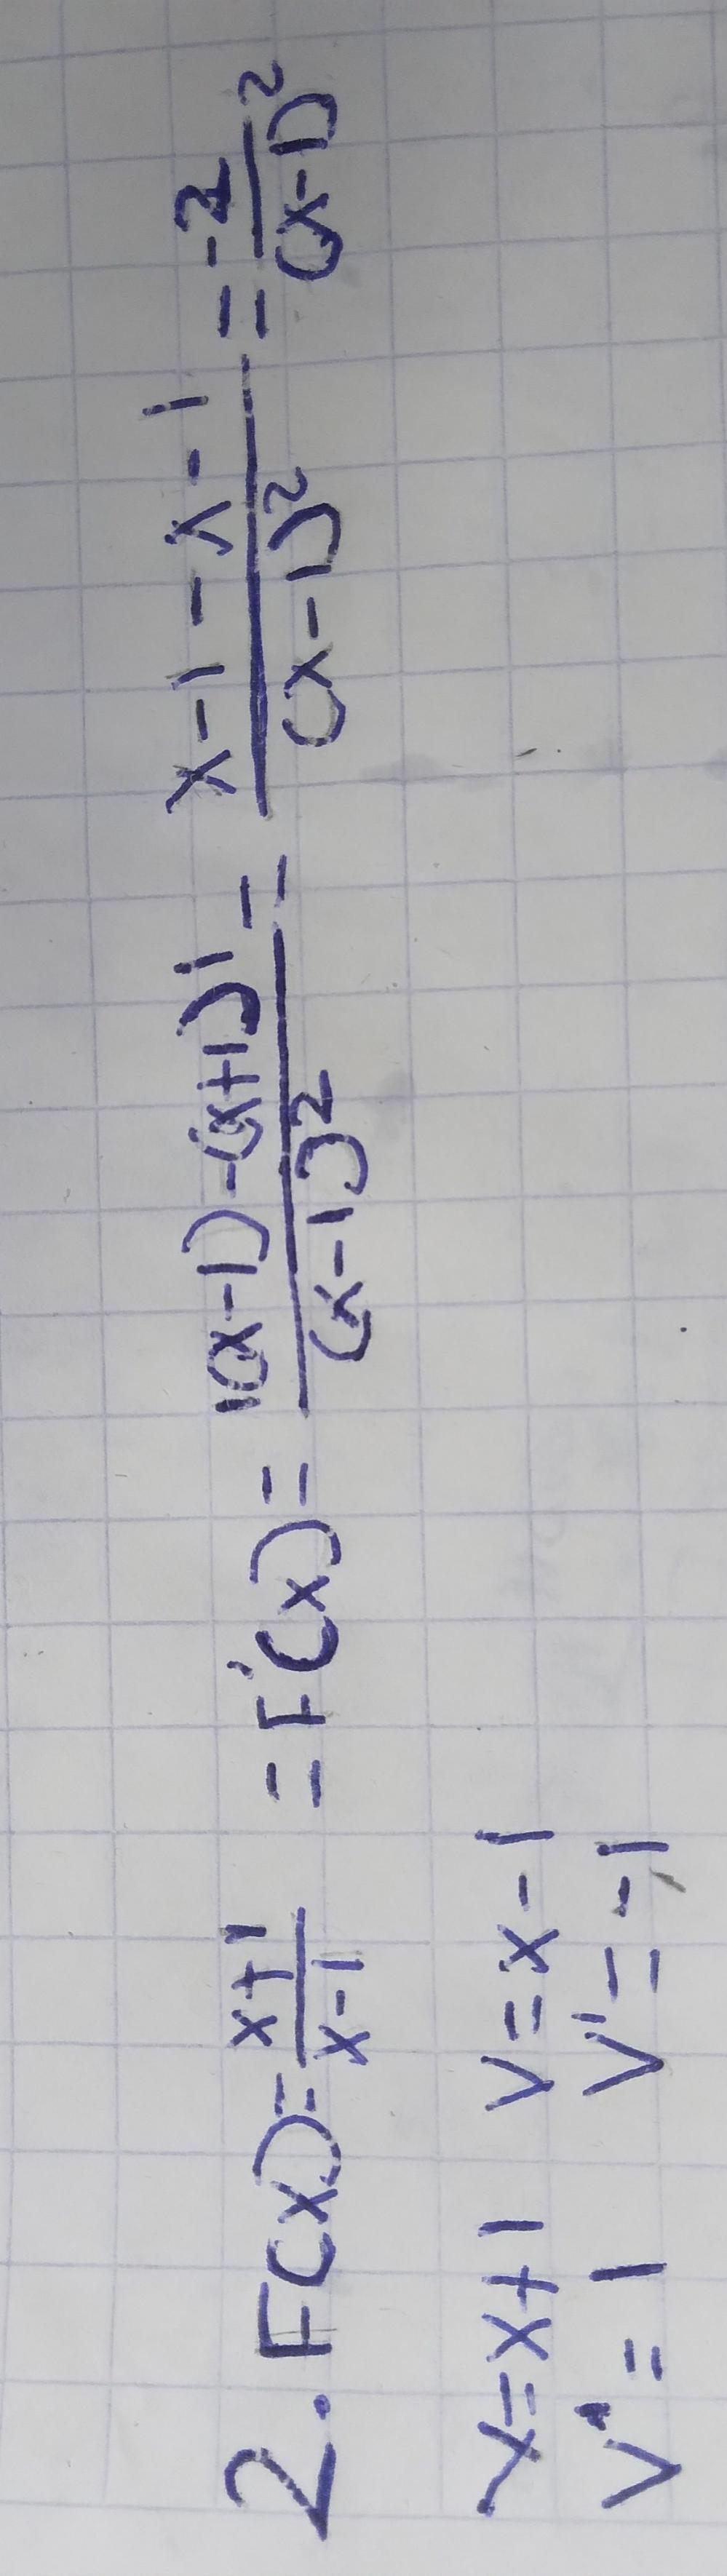 2. F(x) = x+1/x-1 = F'(x) = 1(x-1)-(x+1)1/(x-1)² = x-1-x-1/(x-1)² = -2/(x-1)²
y=x+1 v=x-1
v'=1 v'=-1